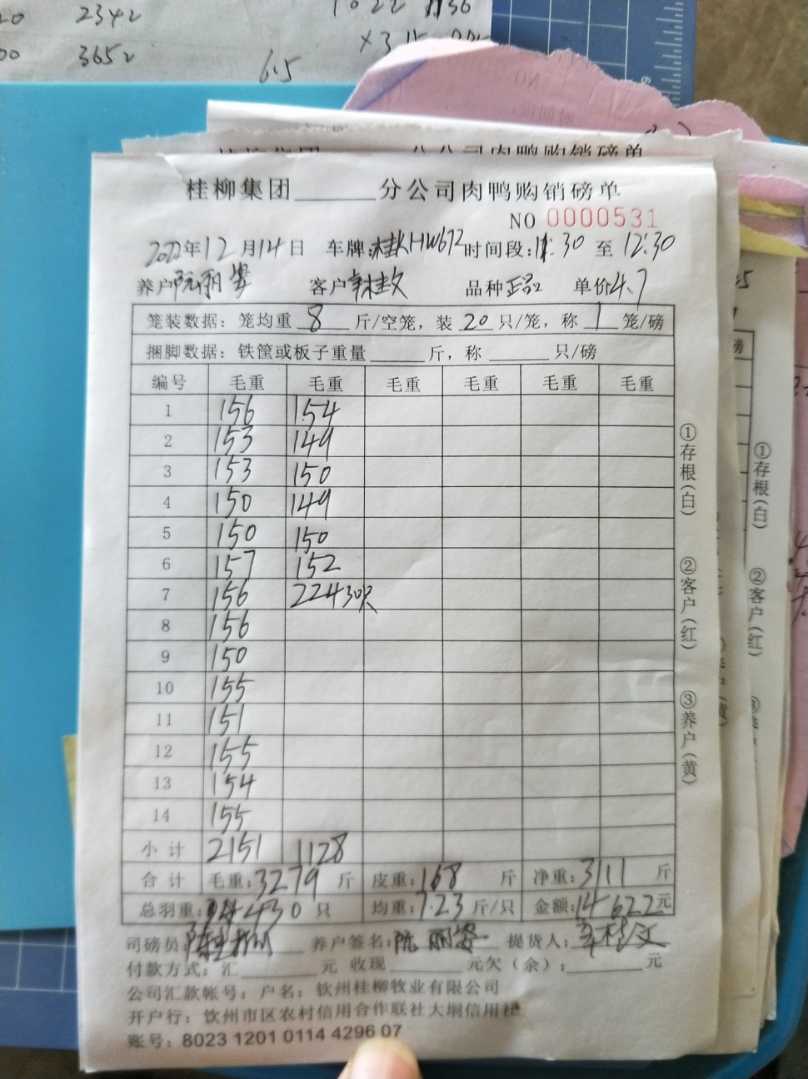 2342
1022 1136
3652
6.5
桂柳集团______分公司肉鸭购销磅单
NO 0000531
2022年12月14日 车牌:桂KHW672 时间段:11:30 至 12:30
养户阮丽安 客户 品种正品 单价4.7
笼装数据: 笼均重 8 斤/空笼, 装 20 只/笼, 称 1 笼/磅
捆脚数据: 铁筐或板子重量______斤, 称______只/磅
编号 毛重 毛重 毛重 毛重 毛重 毛重
1 156 154
2 153 149
3 153 150
4 150 149
5 150 150
6 157 152
7 156 224 30只
8 156
9 150
10 155
11 151
12 155
13 154
14 155
小计 2151 1128
合计 毛重:3279 斤 皮重:168 斤 净重:3111 斤
总羽重: 430 只 均重:7.23 斤/只 金额:14622元
司磅员: 养户签名:阮丽安 提货人:
付款方式: 汇______元 收现______元欠(余):______元
公司汇款帐号: 户名: 钦州桂柳牧业有限公司
开户行: 钦州市区农村信用合作联社大垌信用社
账号: 8023 1201 0114 4296 07
①存根(白) ②客户(红) ③养户(黄)
①存根(白) ②客户(红)